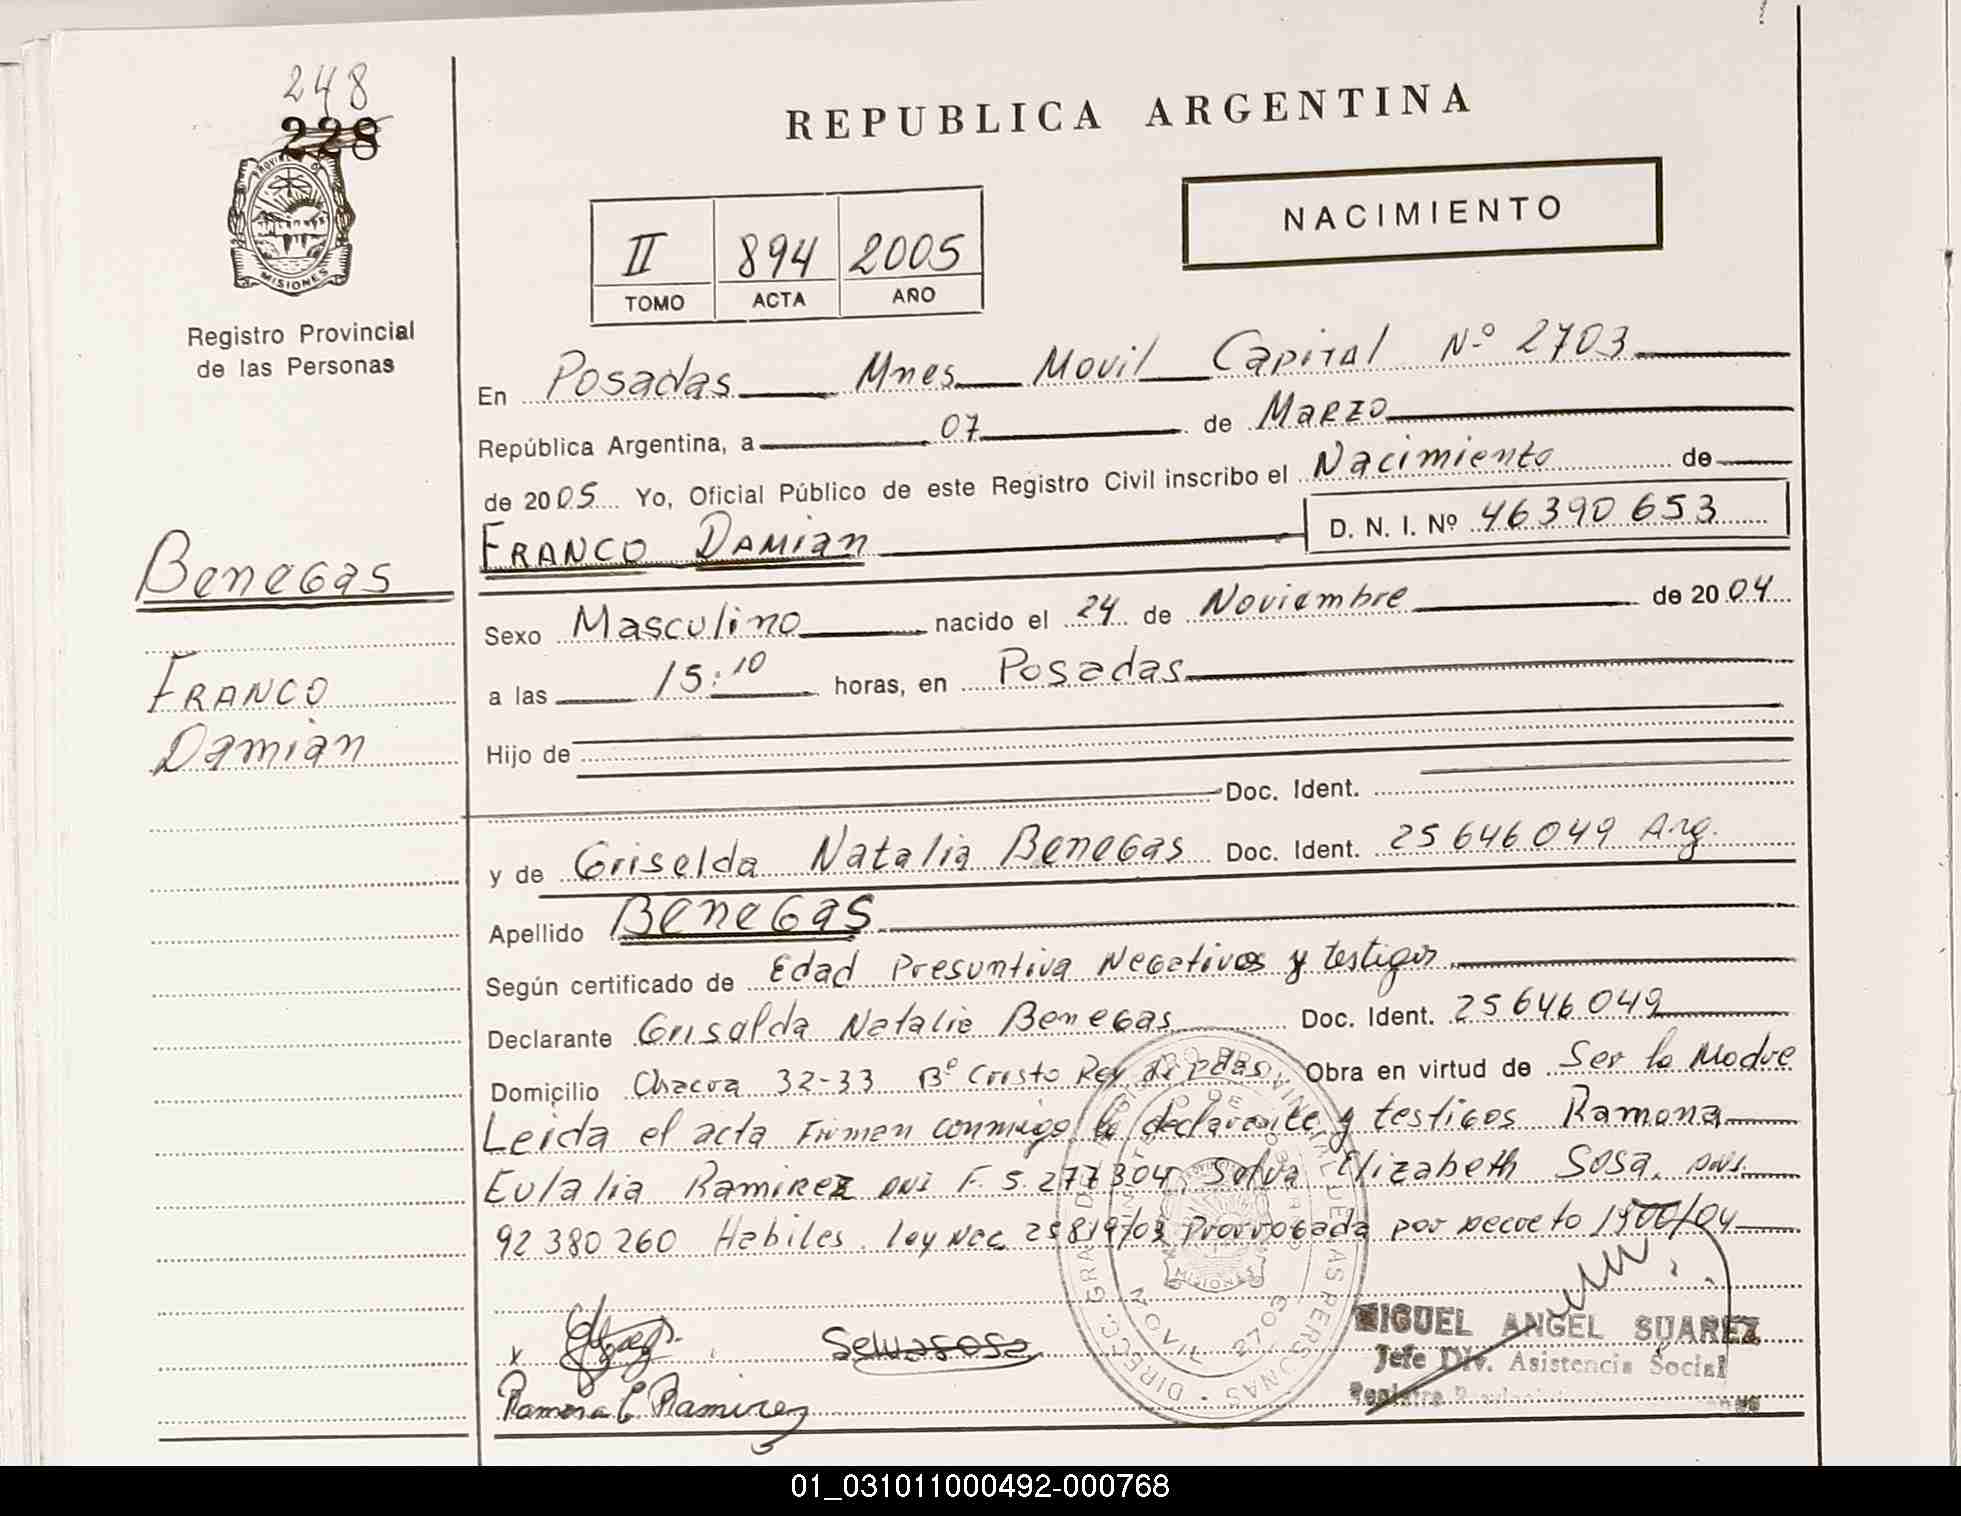 248
228
PROVINCIA DE
MISIONES
Registro Provincial
de las Personas
REPUBLICA ARGENTINA
NACIMIENTO
II 894 2005
TOMO ACTA AÑO
En Posadas Mnes Movil Capital Nº 2703
República Argentina, a 07 de Marzo
de 2005 Yo, Oficial Público de este Registro Civil inscribo el Nacimiento de
Franco Damian D. N. I. Nº 46390653
Benegas
Franco
Damian
Sexo Masculino nacido el 24 de Noviembre de 2004
a las 15:10 horas, en Posadas
Hijo de
Doc. Ident.
y de Griselda Natalia Benegas Doc. Ident. 25646049 Arg.
Apellido Benegas
Según certificado de Edad Presuntiva Negativos y testigos
Declarante Griselda Natalia Benegas Doc. Ident. 25646049
Domicilio Chacra 32-33 Bº Cristo Rey de pdas Obra en virtud de Ser la Madre
Leida el acta Firman conmigo la declarante y testigos Ramona
Eulalia Ramirez DNI F. 5.277304, Selva Elizabeth Sosa, DNI
92380260 Habiles. ley Nac 25819/03 Prorrogada por Decreto 1900/04
Selva Sosa
Ramona E Ramirez
MIGUEL ANGEL SUAREZ
Jefe Div. Asistencia Social
MOVIL 2703
MISIONES
01_031011000492-000768